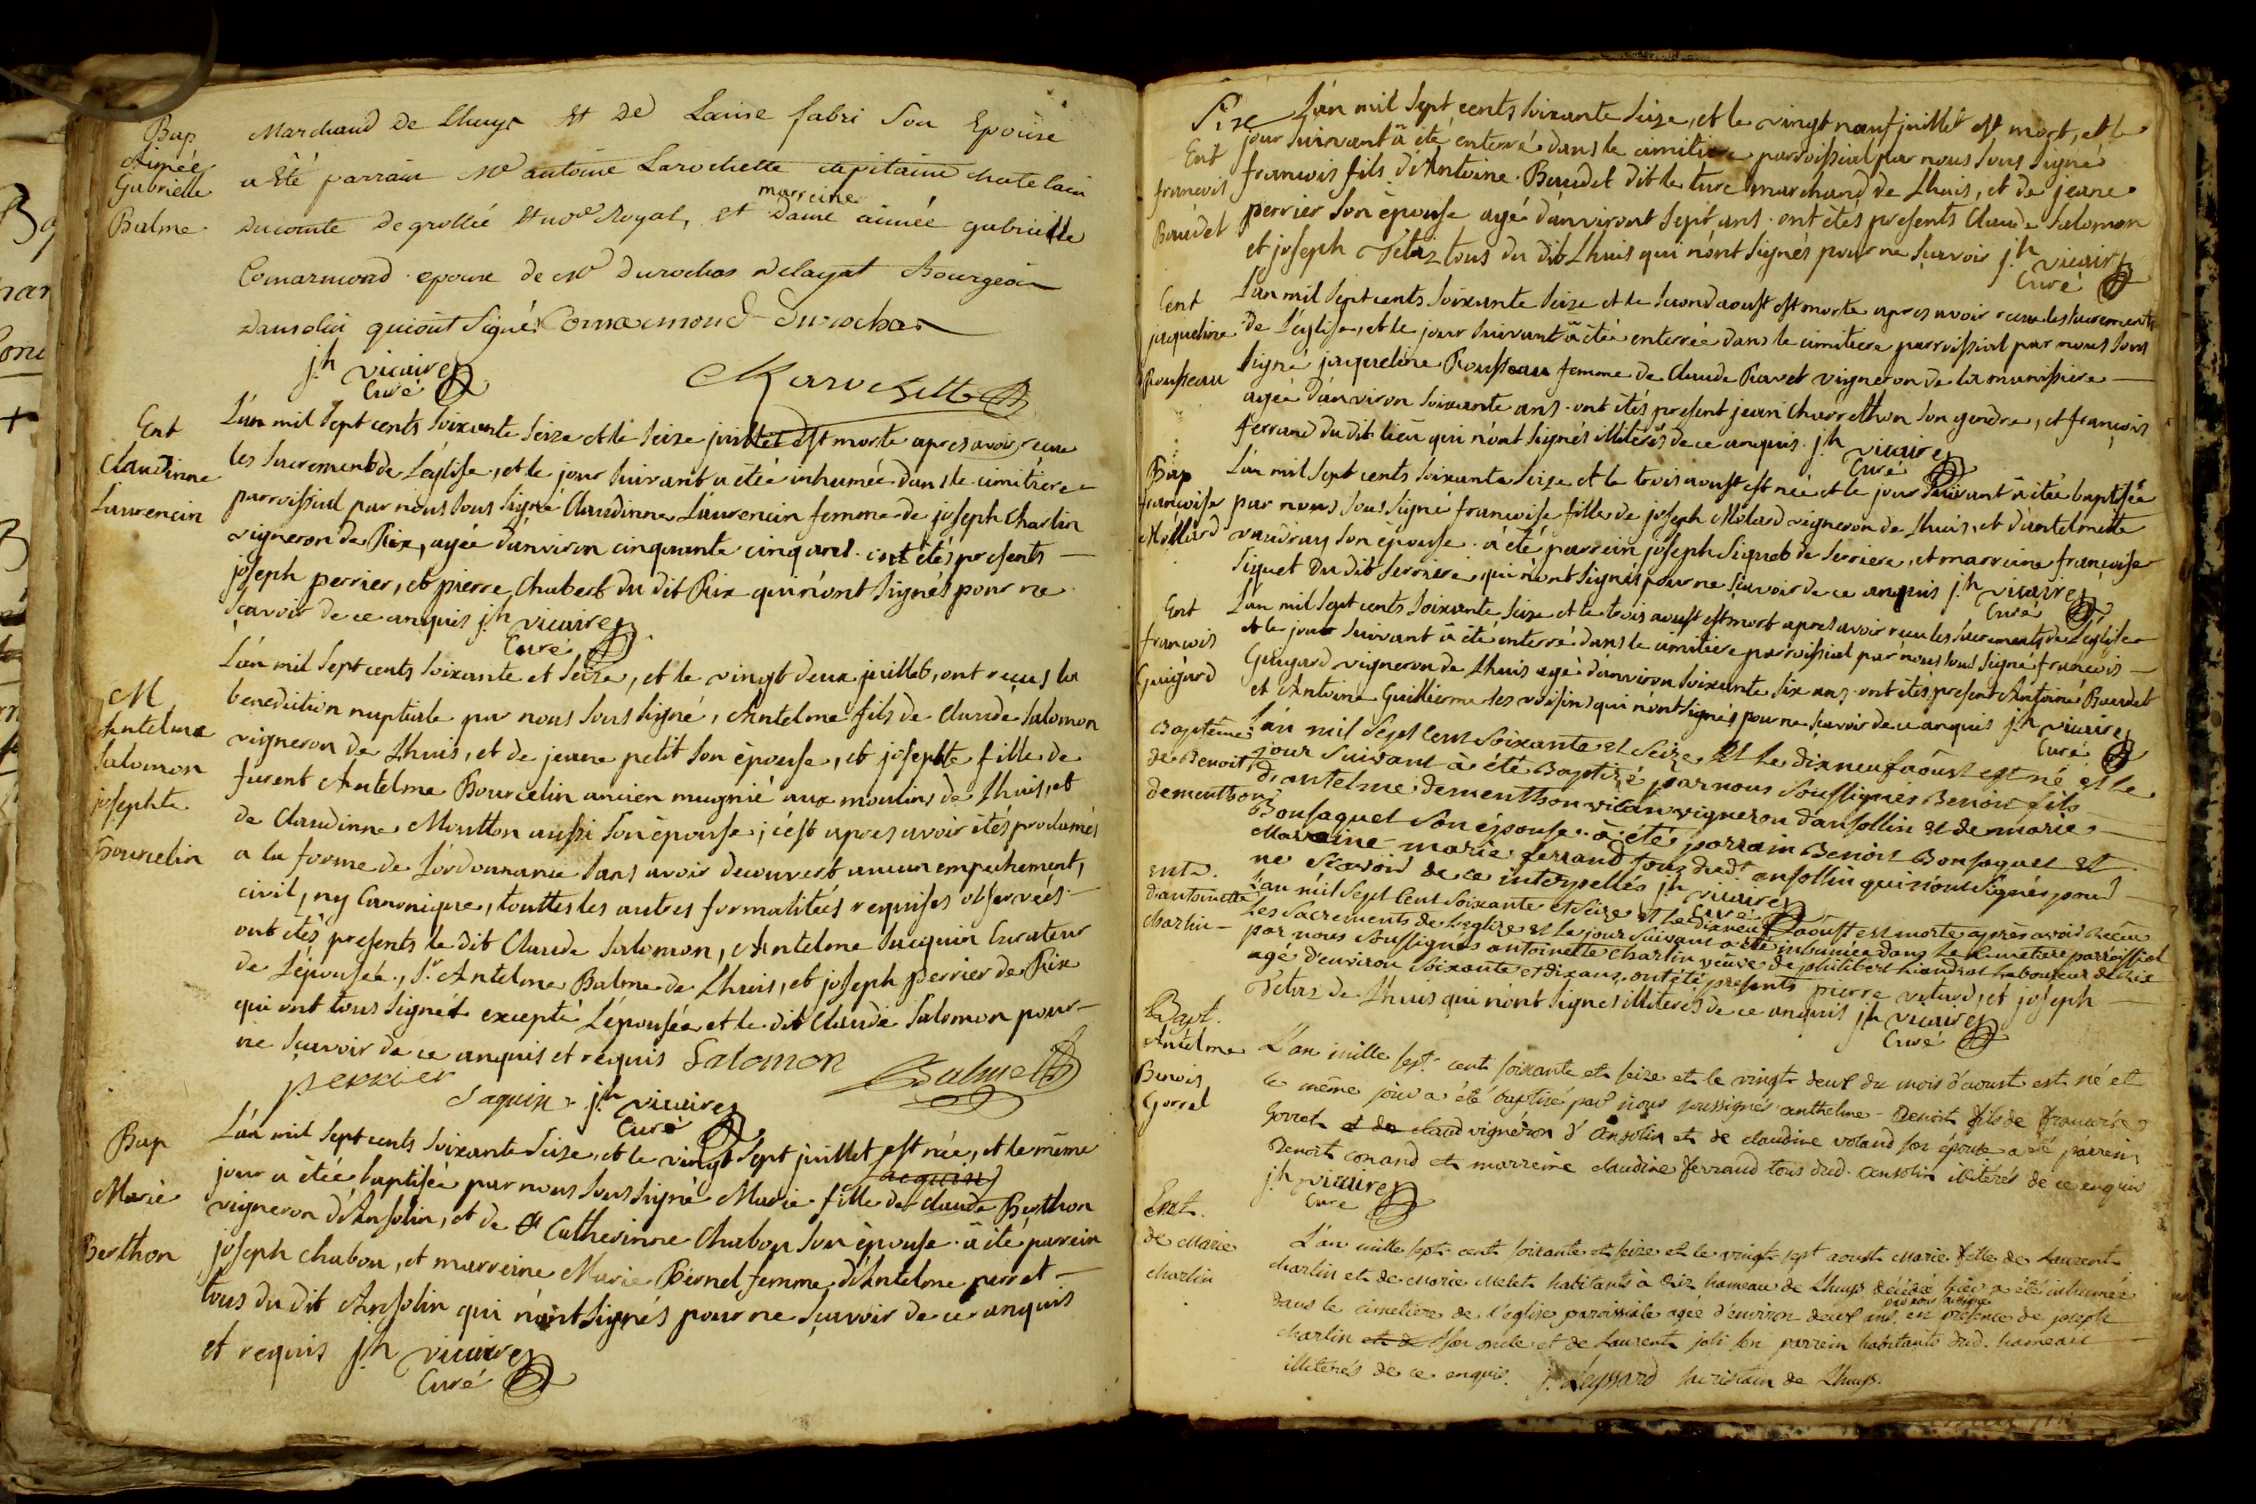 Bap
Aimée
Gabrielle
Balme
Marchand de Lhuys et de Laure fabri son Epouse
a été parrain mr antoine Larochette capitaine chatelain
marreine
du comte de grollée et nore Royal, et Dame aimée gabrielle
Comarmond epouse de mr durochas delagat Bourgeoi
dansolin qui ont signé Comarmond durochas
jh vicaire
Curé
Larochette
Ent
Claudinne
Laurencin
L'an mil sept cents soixante seize et le seize juillet est morte apres avoir recue
les sacrements de L'église, et le jour suivant a étée inhumée dans le cimitiere
parroissial par nous sous signé Claudinne Laurencin femme de joseph Charlin
vigneron de Rix, agée d'anviron cinquante cinq ans. ont étés presents
joseph perrier, et pierre Chabert du dit Rix qui n'ont signés pour ne
sçavoir de ce anquis jh vicaire
Curé
M
Antelme
Salomon
josephte
Bourcelin
L'an mil sept cents soixante et seize, et le vingt deux juillet, ont reçus la
benediction nuptiale par nous sous signé, Antelme fils de Claude Salomon
vigneron de Lhuis, et de jeane petit son épouse, et josephte fille de
furent Antelme Bourcelin ancien mugnié aux moulins de Lhuis, et
de Claudinne Moutton aussi son épouse; c'est apres avoir étés proclamés
a la forme de L'ordonnance sans avoir decouvert aucun empechement,
civil, ny Canonique, touttes les autres formalitées requises observées
ont étés presents le dit Claude Salomon, Antelme Jacquin Curateur
de L'épousée, Sr Antelme Balme de Lhuis, et joseph perrier de Rix
qui ont tous signét excepté L'épousée et le dit Claude Salomon pour
ne sçavoir de ce anquis et requis Salomon
perrier Jaquin jh vicaire Balme
Curé
Bap
Marie
Berthon
L'an mil sept cents soixante seize, et le vingt sept juillet est née, et le même
Jacquin
jour a étée baptisée par nous sous signé Marie fille de Claude Berthon
vigneron d'Ansolin, et de Catherinne Chabou son épouse. a été parrein
joseph chabou, et marreine Marie Bernel femme d'Antelme perret
tous du dit Ansolin qui n'ont signés pour ne sçavoir de ce anquis
et requis jh vicaire
Curé
Ent
francois
Baudet
L'an mil sept cents soixante seize, et le vingt neuf juillet est mort, et le
jour suivant a été enterré dans le cimitiere parroissial par nous sous signé
francois fils d'Antoine Baudet dit le turc marchand de Lhuis, et de jeane
perrier son épouse agé d'anviront sept ans. ont étés presents Claude Salomon
et joseph Vétaz tous du dit Lhuis qui n'ont signés pour ne sçavoir jh vicaire
Curé
Ent
jaqueline
Rousseau
L'an mil sept cents soixante seize et le second aoust est morte apres avoir recue les sacrements
de L'église, et le jour suivant a étée enterrée dans le cimitiere parroissial par nous sous
signé jaqueline Rousseau femme de Claude Ravet vigneron de la manissiere
agée d'anviron soixante ans. ont étés present jean Charretthon son gendre, et françois
ferrand du dit lieu qui n'ont signés illiterés de ce anquis. jh vicaire
Curé
Bap
francoise
Mollard
L'an mil sept cents soixante seize et le trois aoust est née et le jour suivant a étée baptisée
par nous sous signé francoise fille de joseph Molard vigneron de Lhuis, et d'antelmette
vaudray son épouse. a été parrein joseph Siquet de Serriere, et marreine francoise
Siquet du dit Serriere, qui n'ont signés pour ne sçavoir de ce anquis jh vicaire
Curé
Ent
francois
Guigard
L'an mil sept cents soixante seize et le trois aoust est mort apres avoir recu les sacrements de L'église
et le jour suivant a été enterré dans le cimitiere parroissial par nous sous signé francois
Guigard vigneron de Lhuis agé d'anviron soixante six ans. ont étés present Antoine Baudet
et Antoine Guillierme ses voisins qui n'ont signés pour ne sçavoir de ce anquis jh vicaire
Curé
Baptême
de Benoit
dementhon
L'an mil sept cent soixante et seize et le dix neuf aoust est né et le
jour suivant à été Baptizé par nous soussignés Benoit fils
d'antelme dementhon vitan vigneron d'ansollin et de marie
Bonsaquet son épouse. à été parrain Benoit Bonsaquet et
Marraine marie ferrand tous dud.t ansollin qui n'ont signés pour
ne scavoir de ce interpellés jh vicaire
Curé
ent.
d'antoinette
charlin
L'an mil sept cent soixante et seize et le dixneuf aoust est morte après avoir recue
Les sacrements de l'eglize et le jour suivant a été inhumée dans le cimetiere parroissial
par nous soussignés antoinette charlin veuve de philibert laboureur de Rix
agé d'environ soixante et dix ans, ont été presents pierre vetard, et joseph
Vetas de Lhuis qui n'ont signés illiterés de ce anquis jh vicaire
Curé
Bapt.
Antelme
Benois
Gorrel
L'an mille sept cent soixante et seize et le vingt deux du mois d'aoust est né et
le même jour a été baptizé par nous soussignés anthelme Benoit fils de francois
Gorrel et de claud vignéron d'ansolin et de claudine voland son épouse a été parrein
Benoit conand et marreine claudine ferrand tous dud. ansolin illiterés de ce enquis
jh vicaire
Curé
Ent.
de marie
charlin
L'an mille sept cent soixante et seize et le vingt sept aoust marie fille de Laurent
charlin et de marie melet habitants à Rix hameau de Lhuys décédée hier a été inhumée
par nous soussigné
dans le cimetiere de l'eglise paroissiale agée d'environ deux ans, en présence de joseph
charlin et de son oncle et de Laurent joli son parrein habitants dud. hameau
illiterés de ce enquis. j. Leyssard sacristain de Lhuys.